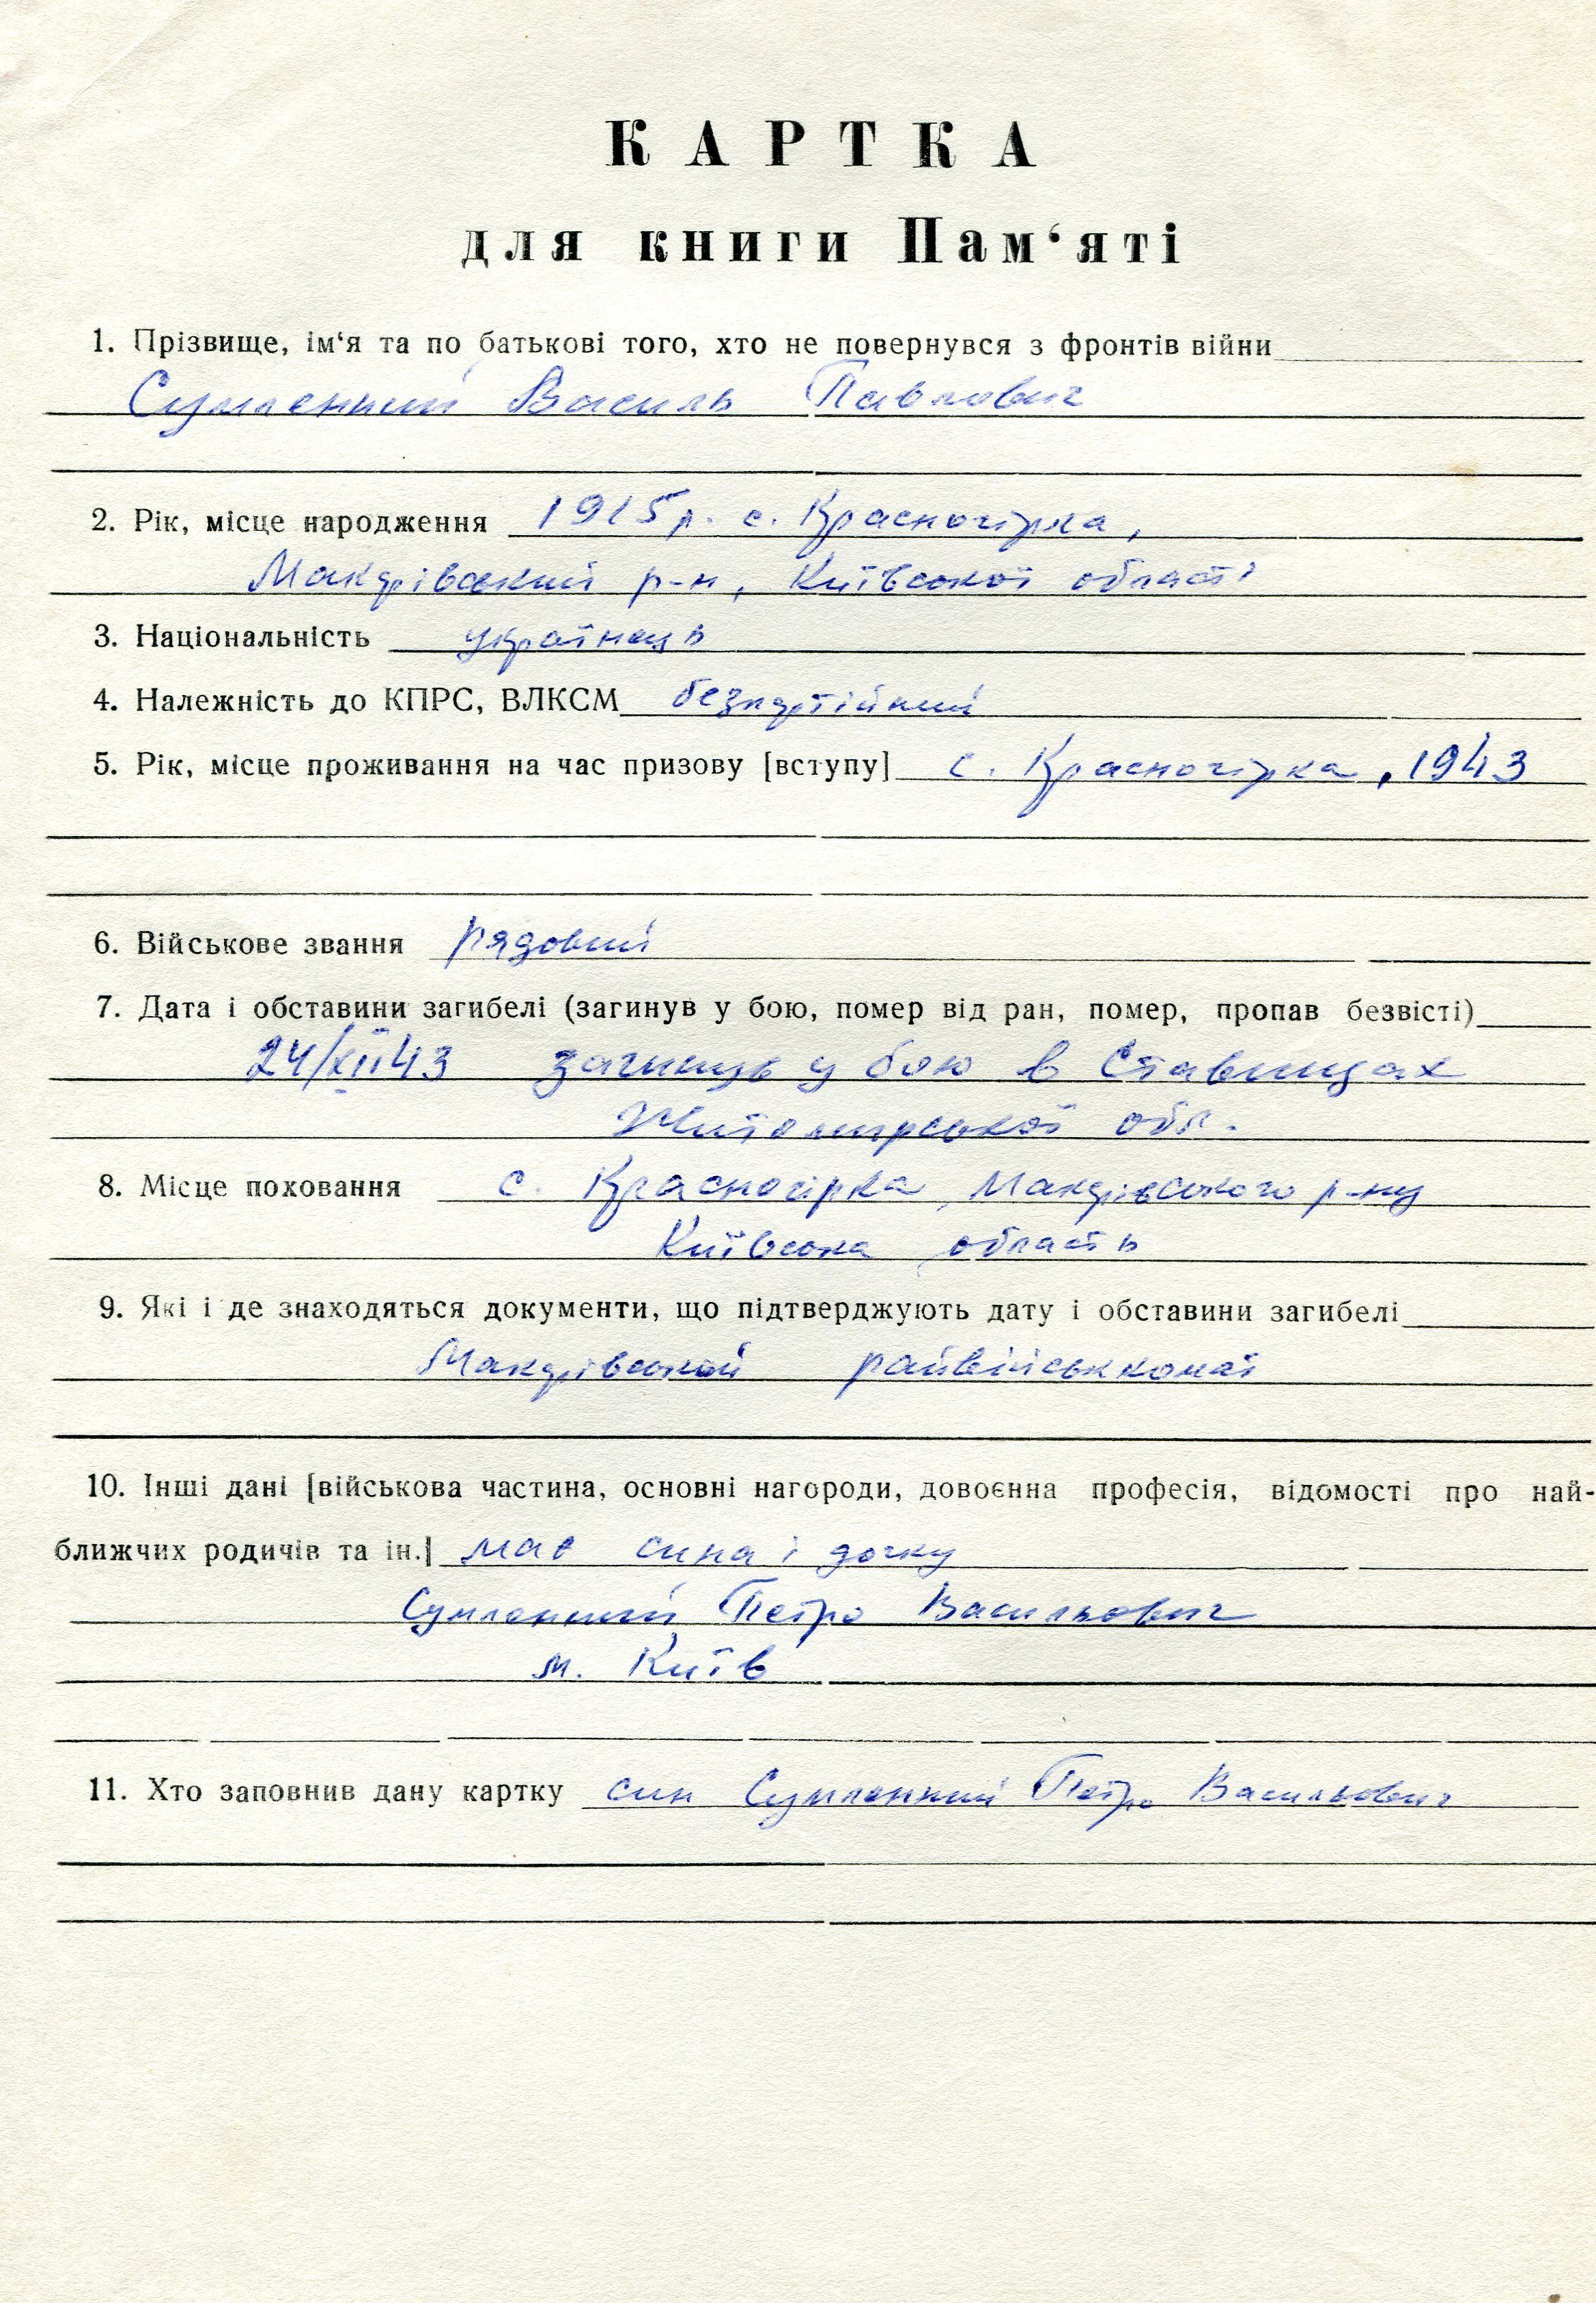 КАРТКА
для книги Пам‘яті
1. Прізвище, ім‘я та по батькові того, хто не повернувся з фронтів війни
Сумленний Василь Павлович
2. Рік, місце народження 1915 р. с. Красногірка,
Макарівський р-н, Київської області
3. Національність українець
4. Належність до КПРС, ВЛКСМ безпартійний
5. Рік, місце проживання на час призову [вступу] с. Красногірка, 1943
6. Військове звання рядовий
7. Дата і обставини загибелі (загинув у бою, помер від ран, помер, пропав безвісті)
24/XII43 загинув у бою в Ставищах
Житомирської обл.
8. Місце поховання с. Красногірка, Макарівського р-ну
Київська область
9. Які і де знаходяться документи, що підтверджують дату і обставини загибелі
Макарівський райвійськкомат
10. Інші дані [військова частина, основні нагороди, довоєнна професія, відомості про най-
ближчих родичів та ін.] має сина і дочку
Сумленний Петро Васильович
м. Київ
11. Хто заповнив дану картку син Сумленний Петро Васильович